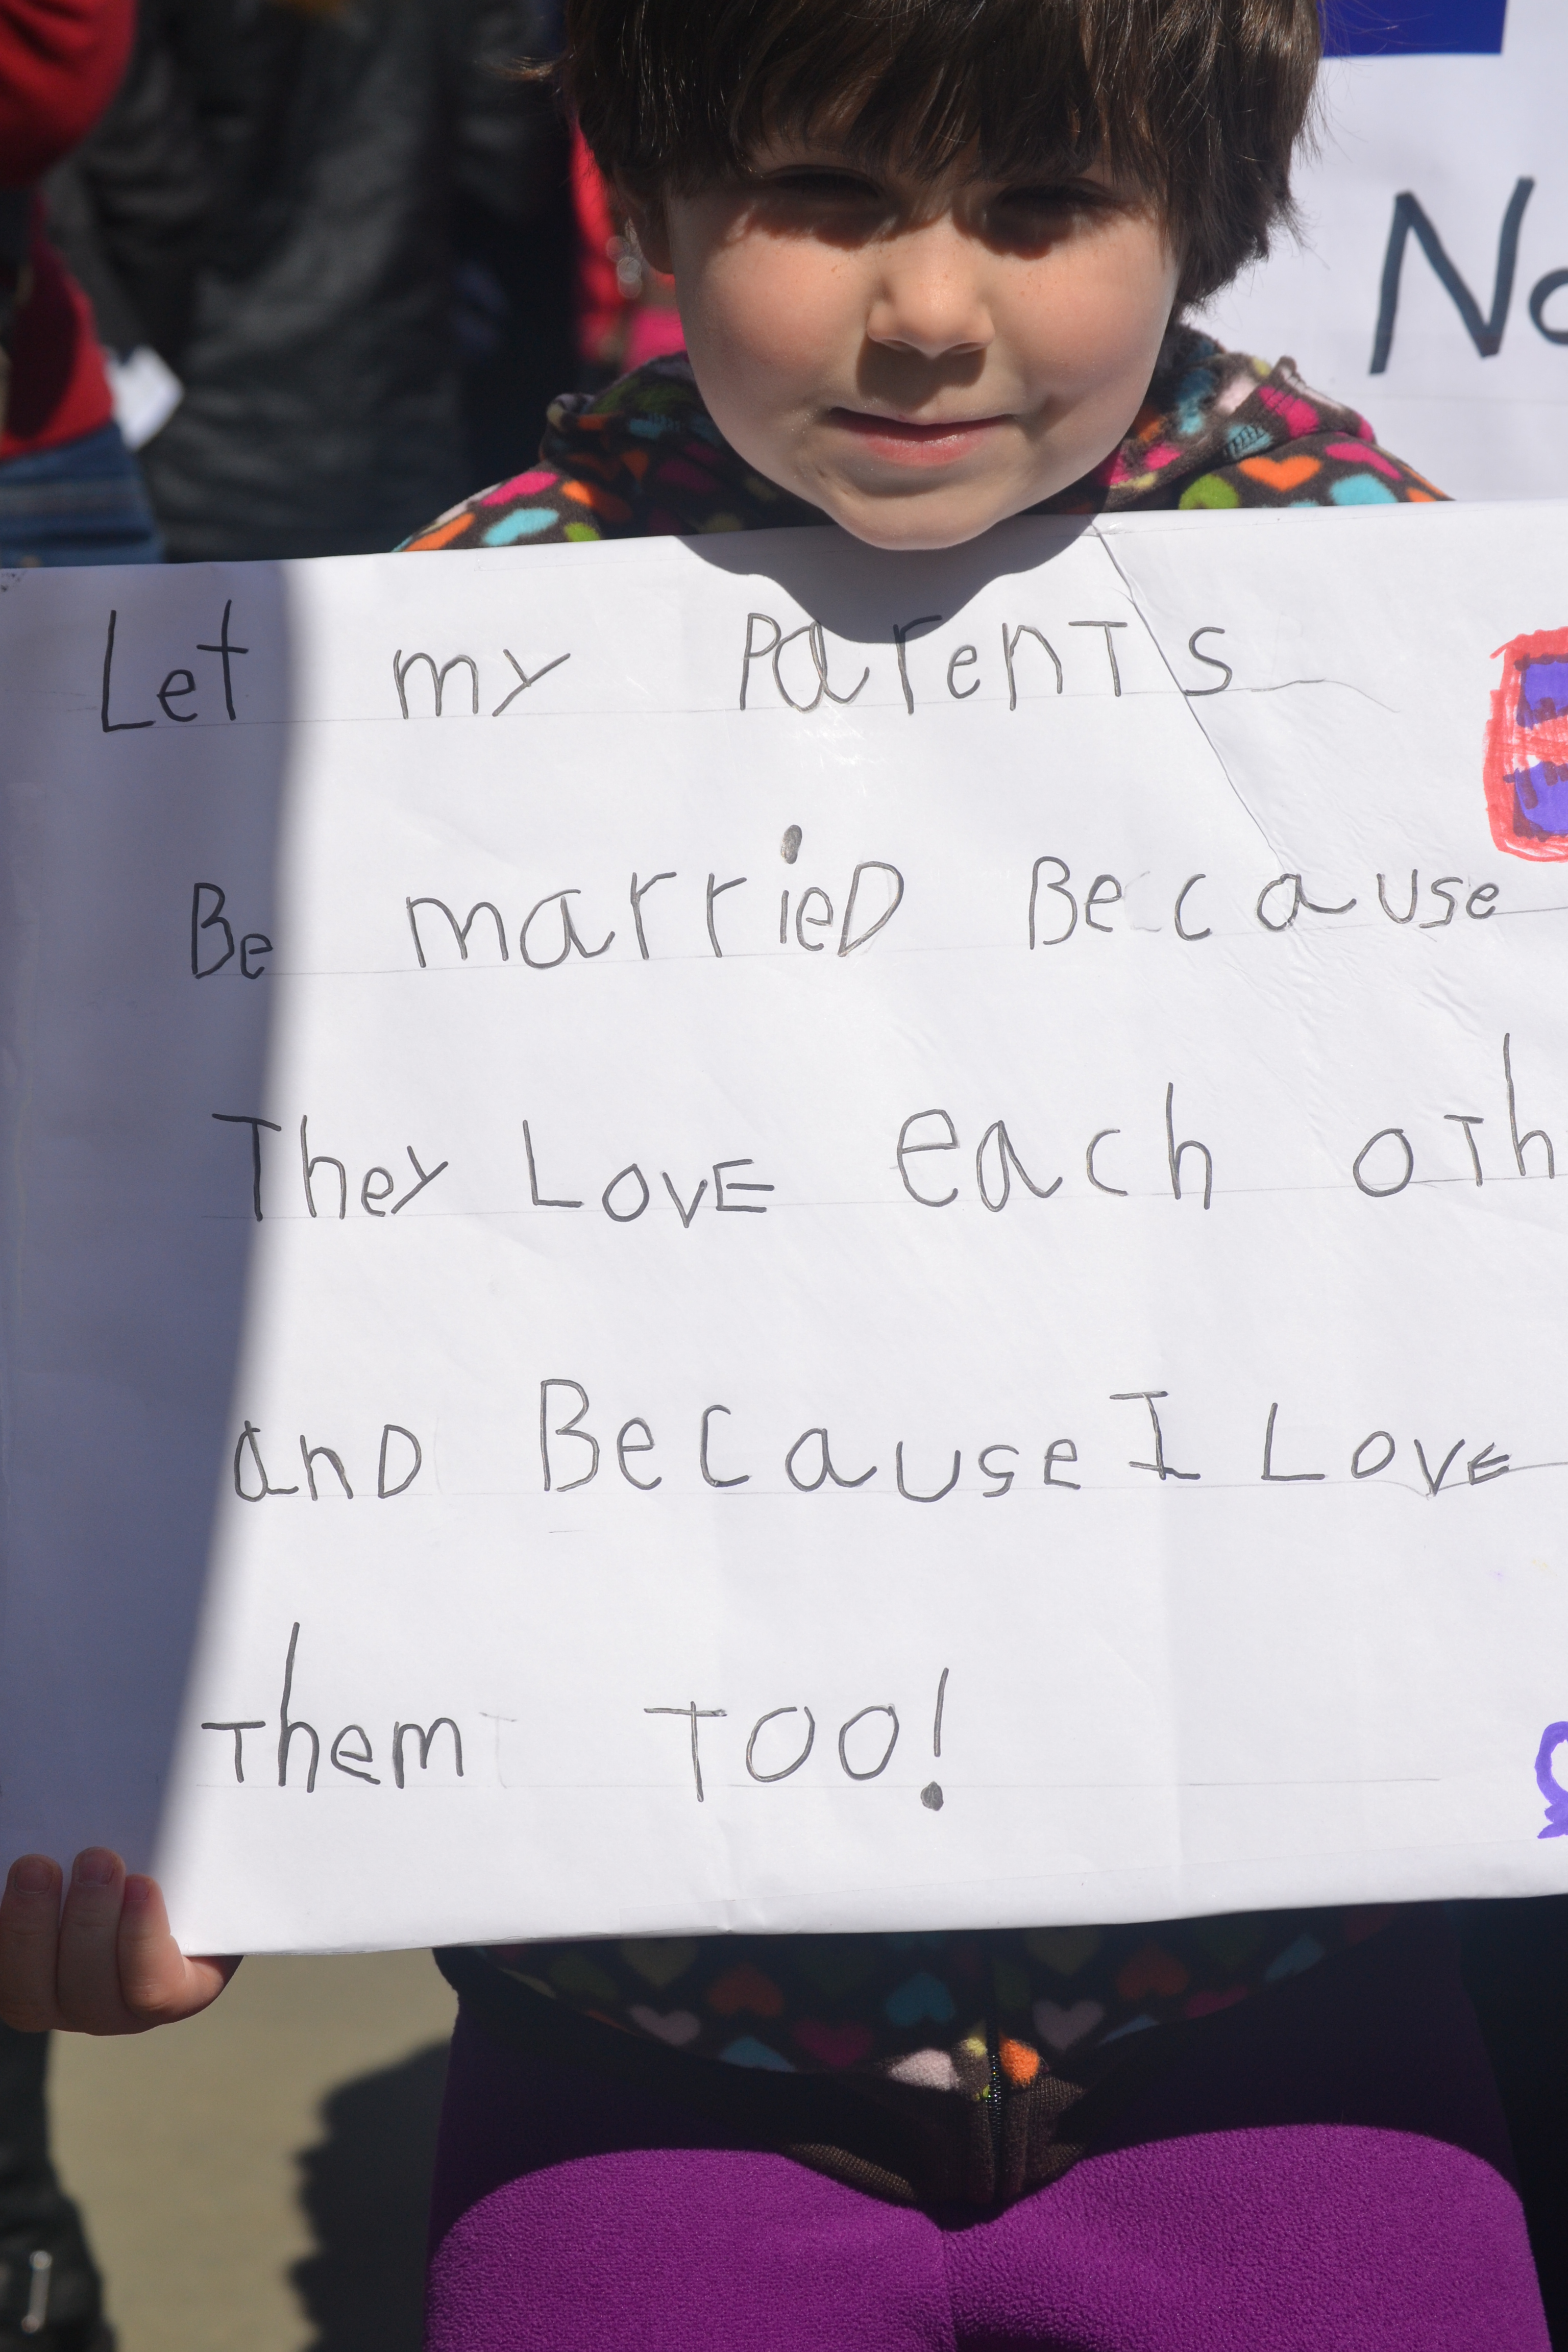 No
Let my Parents
Be marrieD Because
They LovE each oTh
anD Because I Love
Them Too!